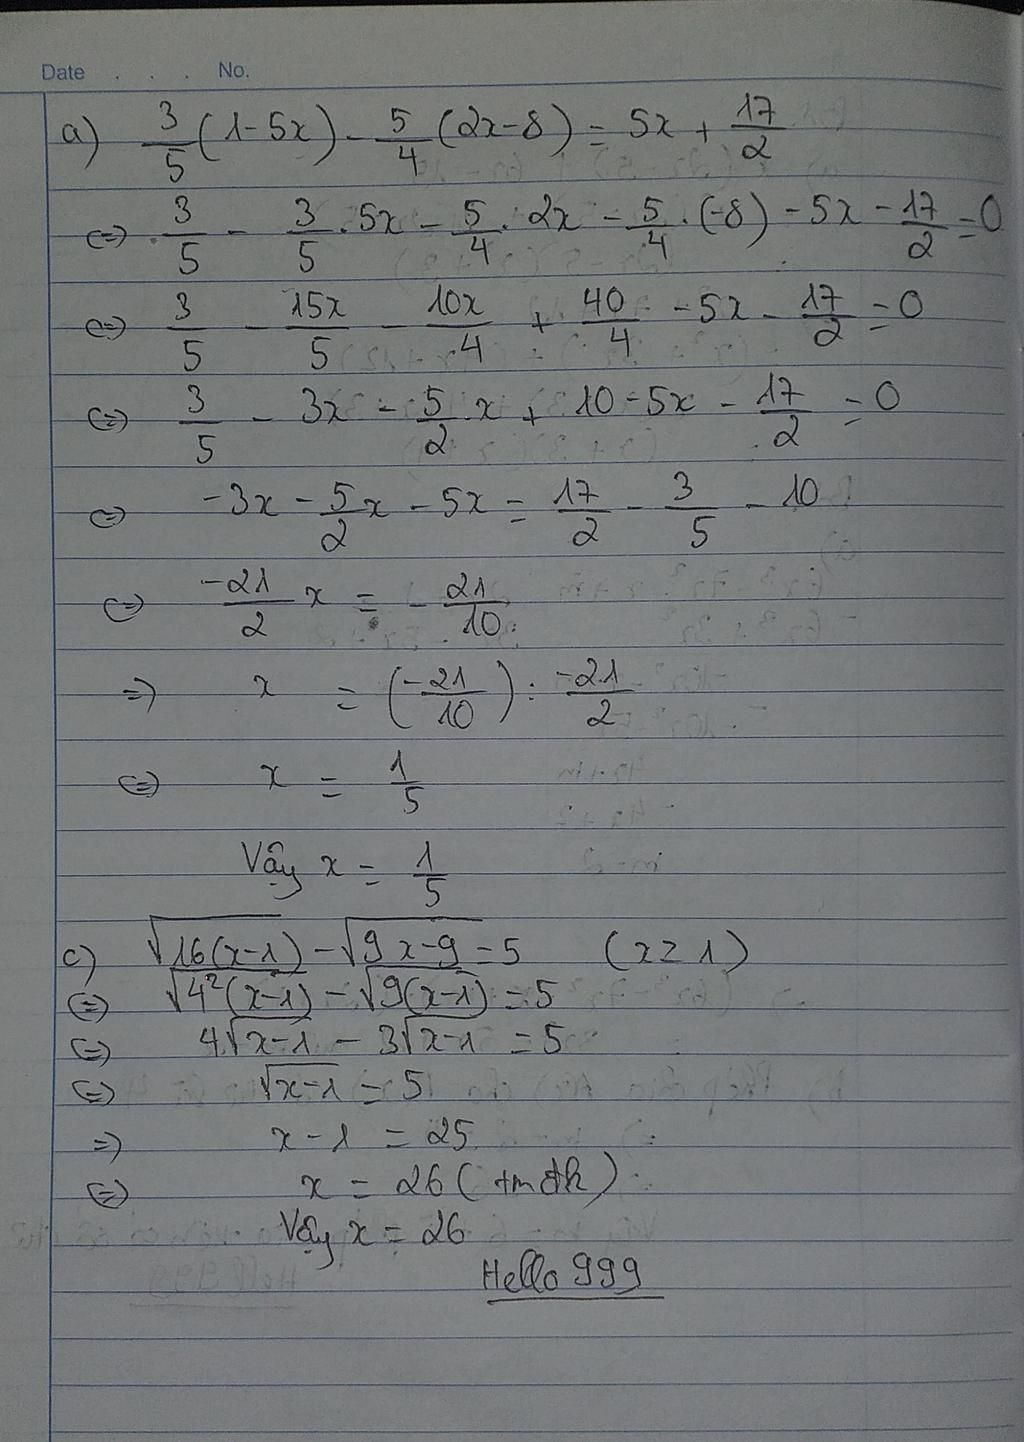 Date . . . No.
a) 3/5 (1-5x) - 5/4 (2x-8) = 5x + 17/2
<=> 3/5 - 3/5 . 5x - 5/4 . 2x - 5/4 . (-8) - 5x - 17/2 = 0
<=> 3/5 - 15x/5 - 10x/4 + 40/4 - 5x - 17/2 = 0
<=> 3/5 - 3x - 5/2 . x + 10 - 5x - 17/2 = 0
<=> -3x - 5/2 x - 5x = 17/2 - 3/5 - 10
<=> -21/2 x = - 21/10
=> x = (-21/10) : -21/2
<=> x = 1/5
Vậy x = 1/5
c) √16(x-1) - √9x-9 = 5 (x ≥ 1)
<=> √4²(x-1) - √9(x-1) = 5
<=> 4√x-1 - 3√x-1 = 5
<=> √x-1 = 5
=> x - 1 = 25
<=> x = 26 (tmđk)
Vậy x = 26
Hello 999